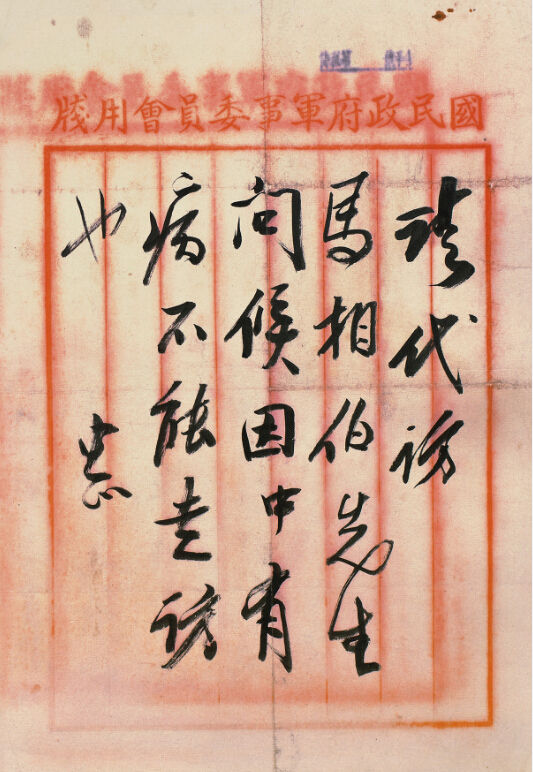 國民政府軍事委員會用牋
請代訪
馬相伯先生
問候因中有
病不能走訪
也